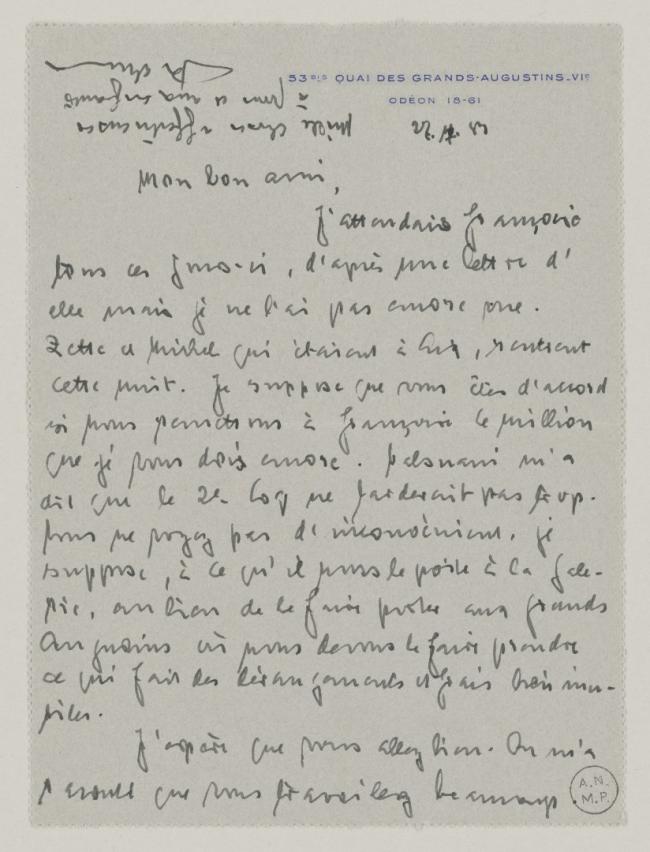 53 BIS QUAI DES GRANDS-AUGUSTINS_VIe
ODÉON 18-61
Mon bon ami,
J'attendais Françoise
tous ces jours-ci, d'après une lettre d'
elle mais je ne l'ai pas encore vue.
Zette et Michel qui étaient à , rentrent
cette nuit. Je suppose que vous êtes d'accord
si nous remettons à Françoise le million
que je vous dois encore. Valsuani m'a
dit que le 2e coq ne tarderait pas trop.
Vous ne voyez pas d'inconvénient, je
suppose, à ce qu'il nous le porte à la gale-
rie, au lieu de le faire porter aux Grands
Augustins où nous devons le faire prendre
ce qui fait des dérangements et frais bien inu-
tiles.
J'espère que vous allez bien. On m'a
raconté que vous travaillez beaucoup.
Mille choses affectueuses
à vous et aux enfants
A.N.
M.P.